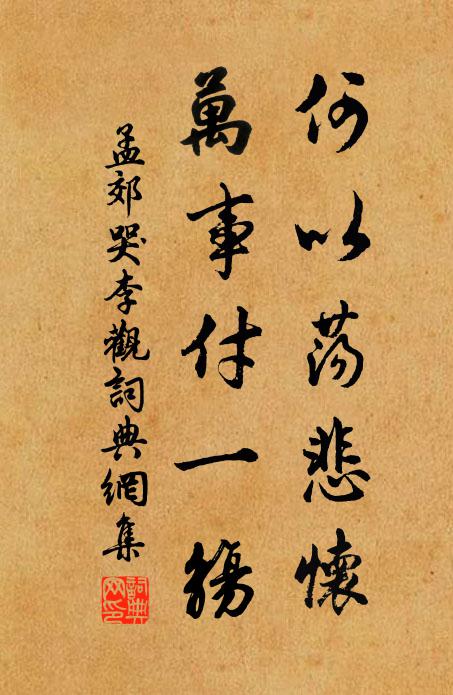 何以荡悲懷
萬事付一觴
孟郊哭李觀詞典網集
詞典网印